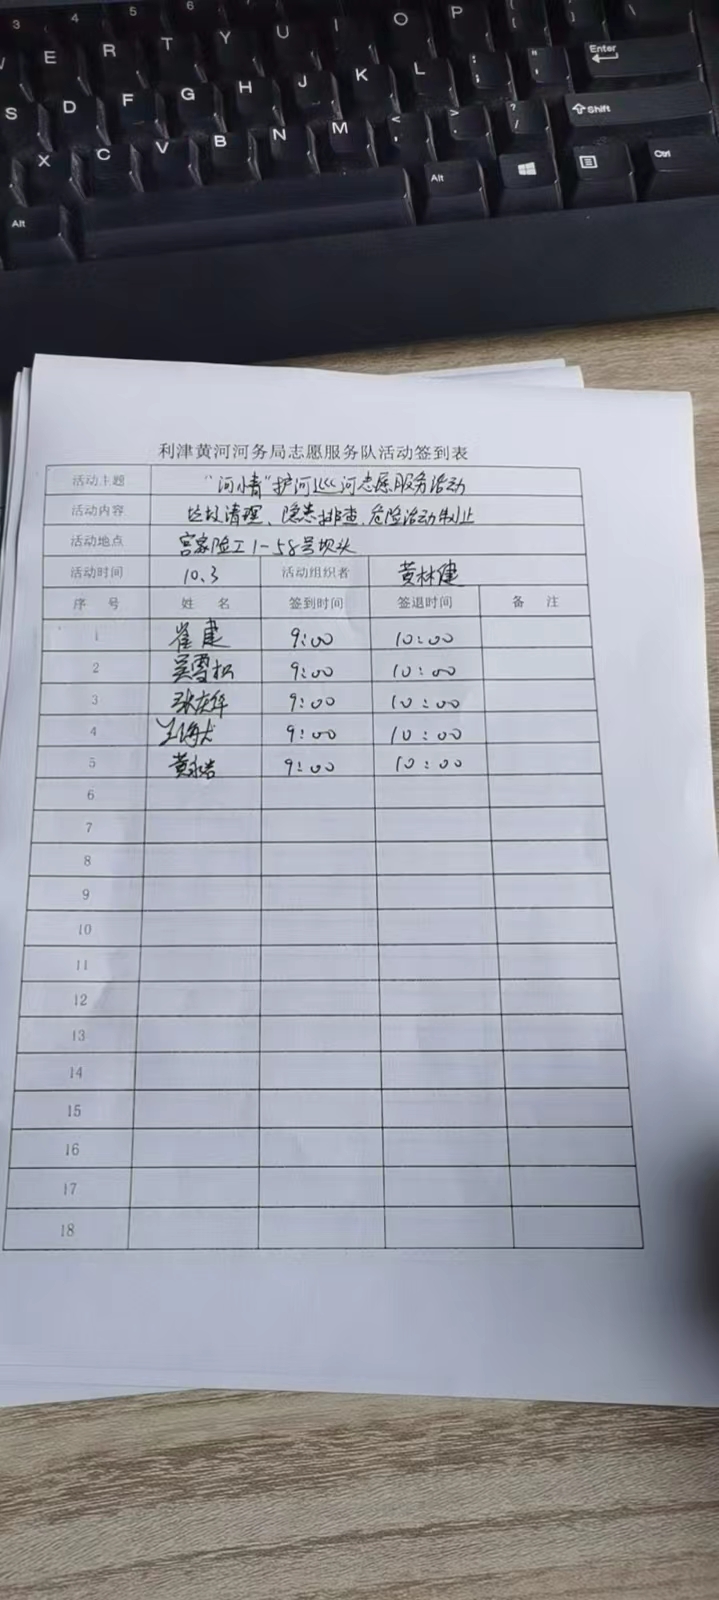 3 4 5 6
E R T Y U I O P { [ } ] | \
Enter
S D F G H J K L : ; " '
Shift
X C V B N M < , > . ? /
Alt Alt Ctrl
利津黄河河务局志愿服务队活动签到表
活动主题 "河小青"护河巡河志愿服务活动
活动内容 垃圾清理、隐患排查、危险活动制止
活动地点 宫家险工1-58号坝头
活动时间 10.3 活动组织者 黄林建
序号 姓名 签到时间 签退时间 备注
1 崔建 9:00 10:00
2 吴雪松 9:00 10:00
3 张庆华 9:00 10:00
4 王海 9:00 10:00
5 黄 9:00 10:00
6
7
8
9
10
11
12
13
14
15
16
17
18